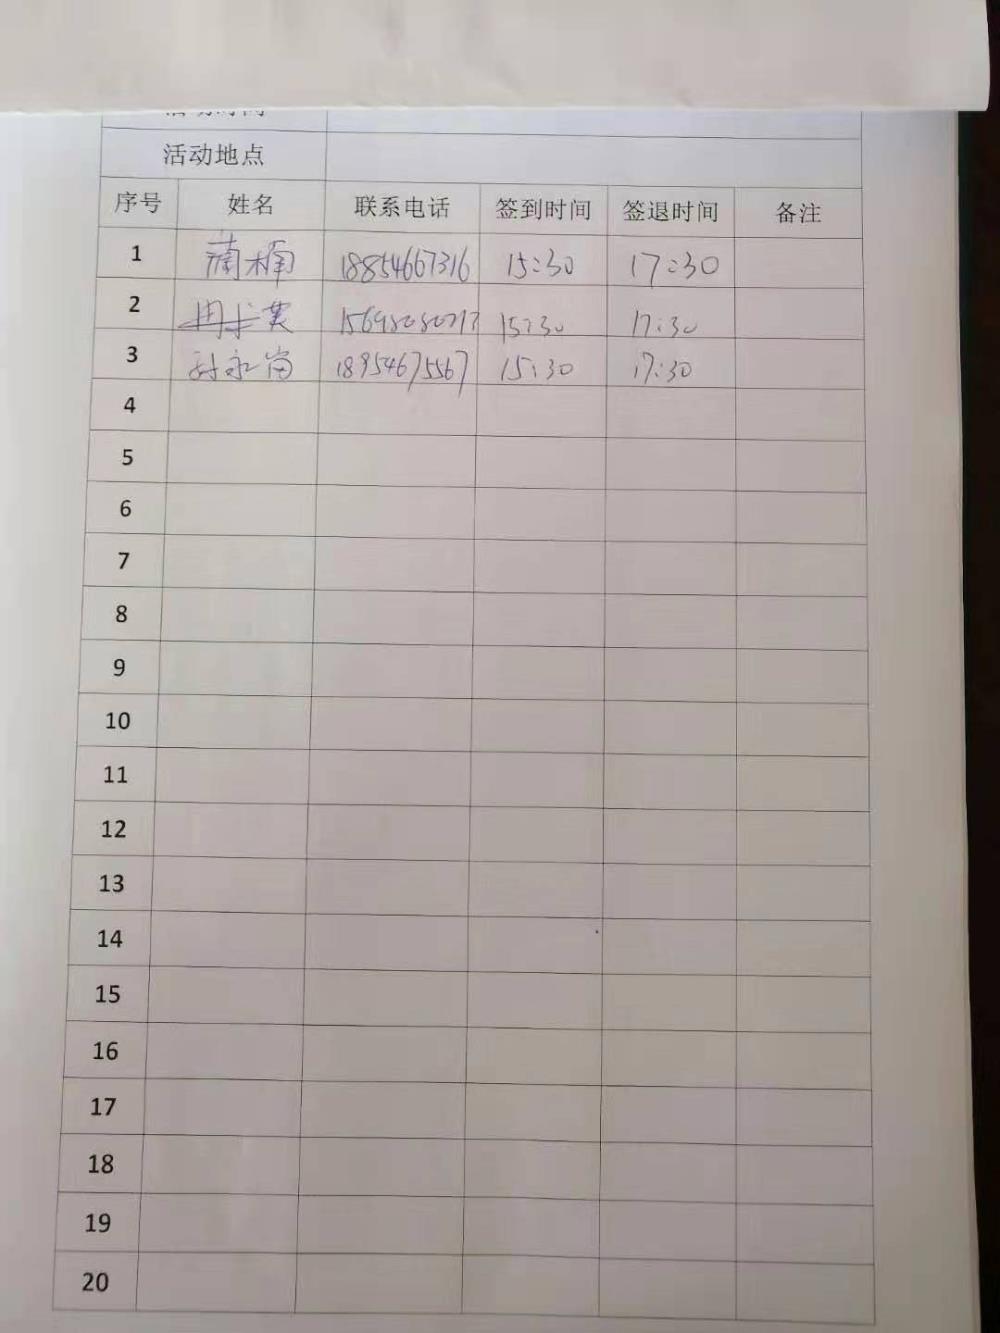 活动时间
活动地点
序号 姓名 联系电话 签到时间 签退时间 备注
1 楠 18854667316 15:30 17:30
2 15:30 17:30
3 孙永富 18954675567 15:30 17:30
4
5
6
7
8
9
10
11
12
13
14
15
16
17
18
19
20